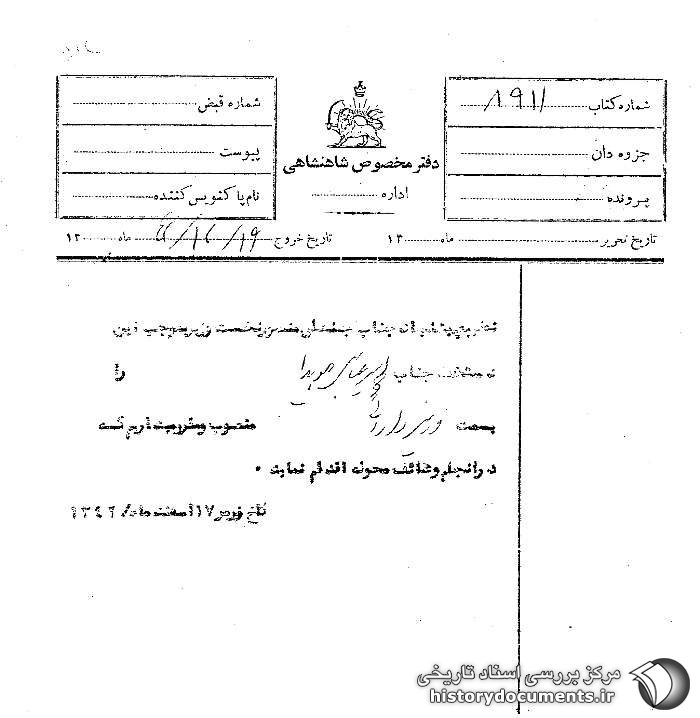 شماره کتاب ۸۹۱۱
جزوه دان
پرونده
دفتر مخصوص شاهنشاهی
اداره
شماره قبض
پیوست
نام پاکنویس کننده
تاریخ تحریر ماه ۱۳
تاریخ خروج ماه ۱۳
نظر به پیشنهاد جناب حسنعلی منصور نخست وزیر بموجب این
دستخط جناب امیرعباس هویدا را
بسمت وزیر دارائی منصوب و مقرر میداریم که
در انجام وظائف محوله اقدام نماید .
کاخ مرمر ۱۷ اسفند ماه ۱۳۴۲
مرکز بررسی اسناد تاریخی
historydocuments.ir